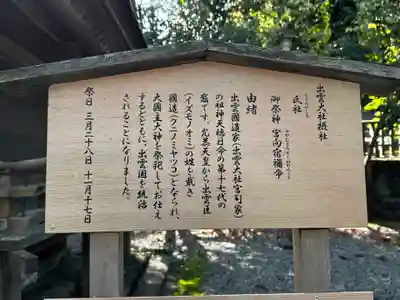 出雲大社摂社
氏社
御祭神 宮向宿禰命
由緒
出雲國造家(出雲大社宮司家)
の祖神天穂日命の第十七代の
裔です。允恭天皇から出雲臣
(イズモノオミ)の姓を戴き
國造(クニノミヤツコ)となられ、
大國主大神を祭祀してお仕え
するとともに、出雲国を統治
されることになりました。
祭日 三月二十八日 十一月十七日